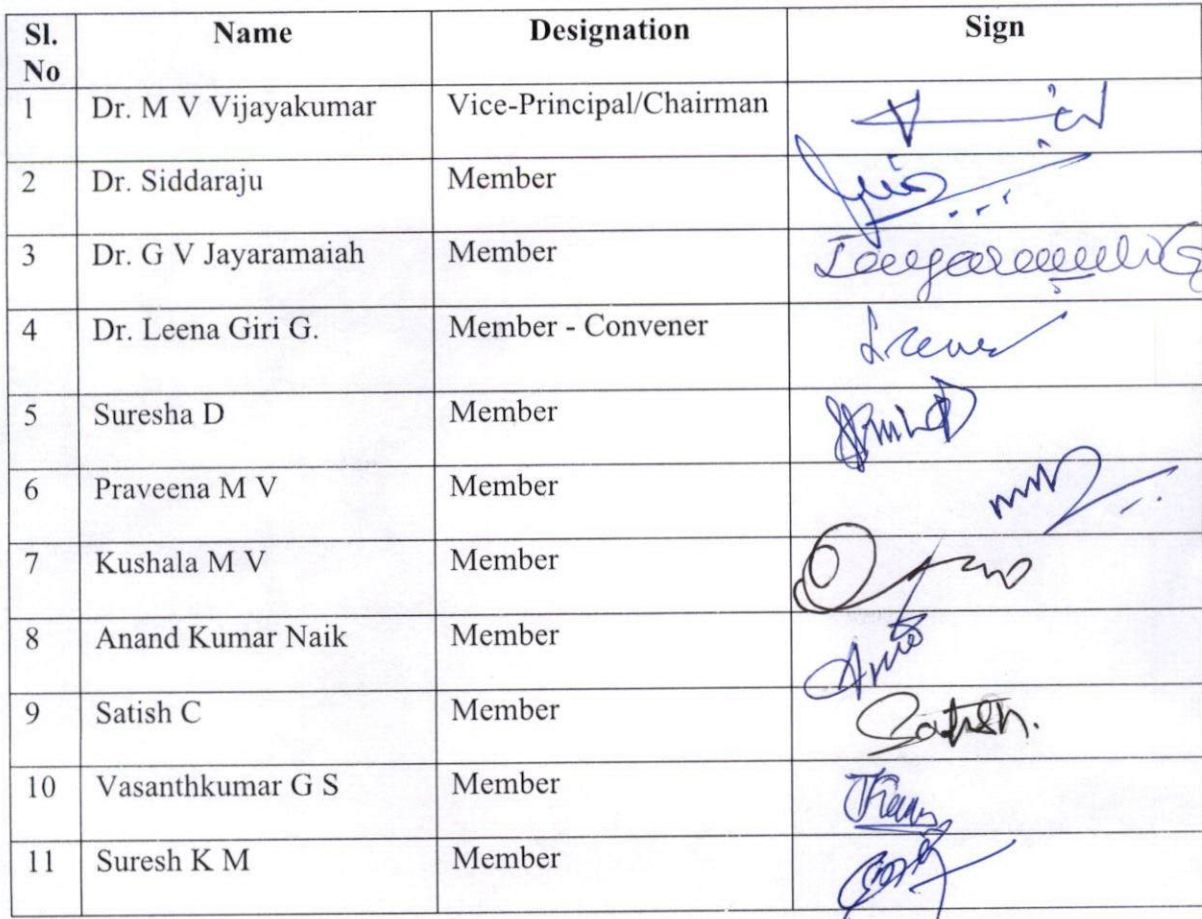 Sl. No Name Designation Sign
1 Dr. M V Vijayakumar Vice-Principal/Chairman
2 Dr. Siddaraju Member
3 Dr. G V Jayaramaiah Member
4 Dr. Leena Giri G. Member - Convener
5 Suresha D Member
6 Praveena M V Member
7 Kushala M V Member
8 Anand Kumar Naik Member
9 Satish C Member Satish.
10 Vasanthkumar G S Member
11 Suresh K M Member